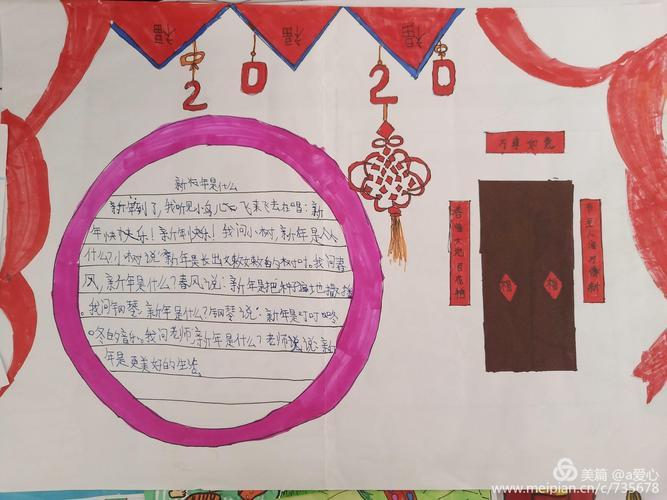 福
福
福
福
2020
新的年是什么
新年到了,我听见小鸟心 飞来飞去在唱:新
年快快乐!新年快乐!我问小树,新年是
什么?小树说:新年是长出 的树叶。我问春
风,新年是什么?春风说:新年是把种 地 撒播
。我问钢琴,新年是什么?钢琴说:新年是叮叮咚
冬的音乐。我问老师,新年是什么?老师说:新
年是更美好的生活。
万事如意
春 大地百花艳
福
福
美篇 @a爱心
www.meipian.cn/c/735678